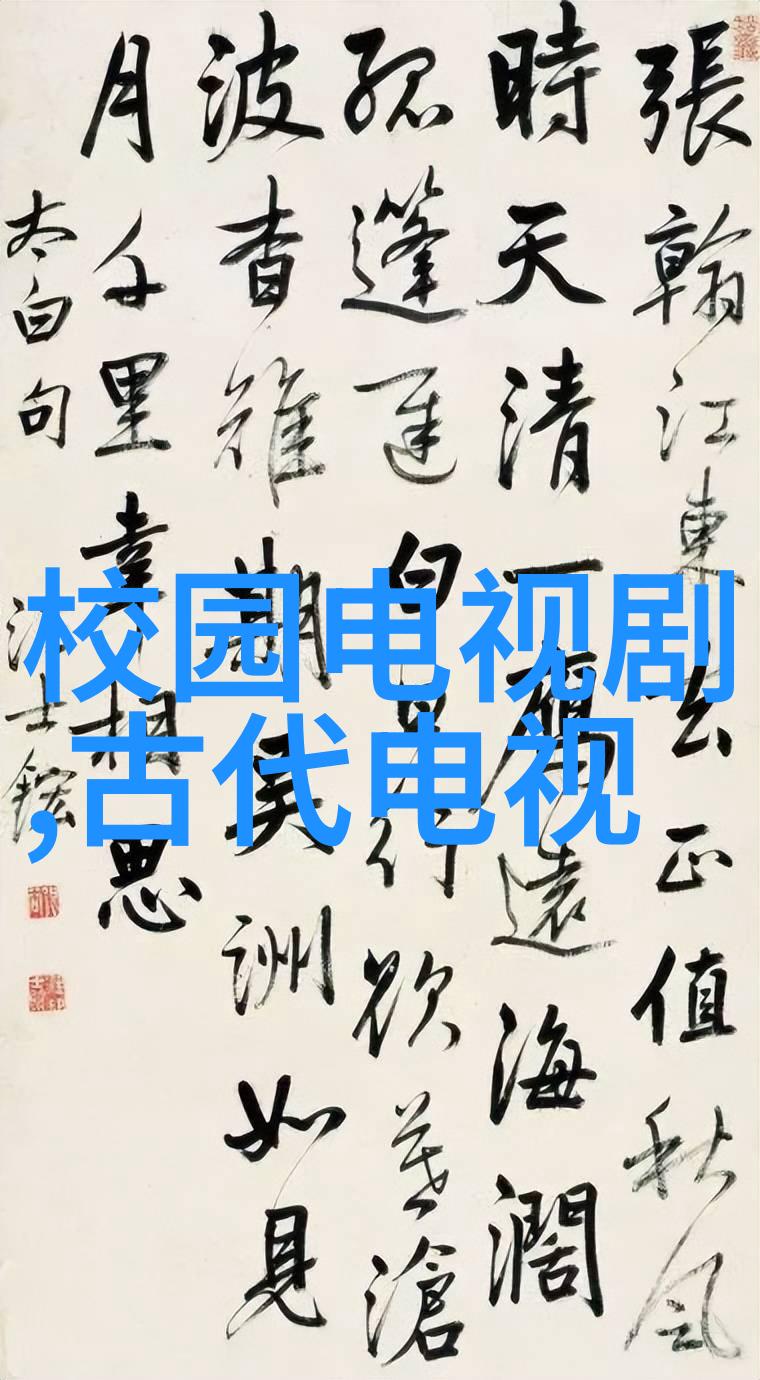 張翰江東去正值秋風
時天清一鴈遠海闊
孤篷遲白日行欲暮滄
波杳難期吳洲如見
月千里幸相思
太白句
汪士鋐
校园电视剧
,古代电视